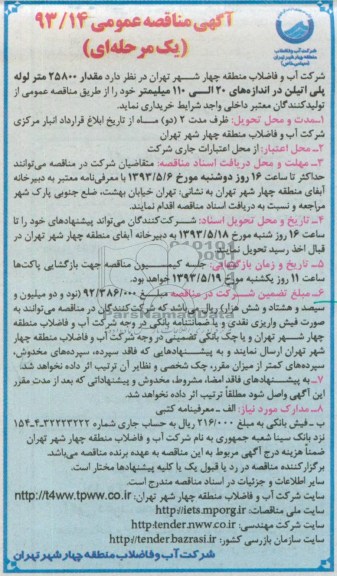 آگهی مناقصه عمومی ۹۳/۱۴
(یک مرحله‌ای)
شرکت آب و فاضلاب
منطقه چهار شهر تهران
(سهامی خاص)
شرکت آب و فاضلاب منطقه چهار شهر تهران در نظر دارد مقدار ۲۵۸۰۰ متر لوله
پلی اتیلن در اندازه‌های ۲۰ الی ۱۱۰ میلیمتر خود را از طریق مناقصه عمومی از
تولیدکنندگان معتبر داخلی واجد شرایط خریداری نماید.
۱_مدت و محل تحویل: ظرف مدت ۲ (دو) ماه از تاریخ ابلاغ قرارداد انبار مرکزی
شرکت آب و فاضلاب منطقه چهار شهر تهران
۲_ محل اعتبار: از محل اعتبارات جاری شرکت
۳_ مهلت و محل دریافت اسناد مناقصه: متقاضیان شرکت در مناقصه می‌توانند
حداکثر تا ساعت ۱۶ روز دوشنبه مورخ ۱۳۹۳/۵/۶ با معرفی‌نامه معتبر به دبیرخانه
آبفای منطقه چهار شهر تهران به نشانی: تهران خیابان بهشت، ضلع جنوبی پارک شهر
مراجعه و نسبت به دریافت اسناد مناقصه اقدام نمایند.
۴_ تاریخ و محل تحویل اسناد: شرکت‌کنندگان می‌تواند پیشنهادهای خود را تا
ساعت ۱۶ روز شنبه مورخ ۱۳۹۳/۵/۱۸ به دبیرخانه آبفای منطقه چهار شهر تهران در
قبال اخذ رسید تحویل نمایند.
۵_ تاریخ و زمان بازگشایی: جلسه کمیسیون مناقصه جهت بازگشایی پاکت‌ها
ساعت ۱۱ روز یکشنبه مورخ ۱۳۹۳/۵/۱۹ خواهد بود.
۶_ مبلغ تضمین شرکت در مناقصه مبلغ ۹۲/۳۸۶/۰۰۰ (نود و دو میلیون و
سیصد و هشتاد و شش هزار) ریال می‌باشد که شرکت‌کنندگان در مناقصه می‌توانند به
صورت فیش واریزی نقدی و یا ضمانتنامه بانکی در وجه شرکت آب و فاضلاب منطقه
چهار شهر تهران و یا چک بانکی تضمینی در وجه شرکت آب و فاضلاب منطقه چهار
شهر تهران ارسال نمایند و به پیشنهادهایی که فاقد سپرده، سپرده‌های مخدوش،
سپرده‌های کمتر از میزان مقرر، چک شخصی و نظایر آن ترتیب اثر داده نخواهد شد.
۷_ به پیشنهادهای فاقد امضا، مشروط، مخدوش و پیشنهاداتی که بعد از مدت مقرر
این آگهی واصل شود مطلقاً ترتیب اثر داده نخواهد شد.
۸_ مدارک مورد نیاز: الف _ معرفینامه کتبی
ب _ فیش بانکی به مبلغ ۲۱۶/۰۰۰ ریال به حساب جاری شماره ۳۲۲۲۳۲۲۲_۴_۱۵۴
نزد بانک سینا شعبه جمهوری به نام شرکت آب و فاضلاب منطقه چهار شهر تهران
ضمناً هزینه درج آگهی مربوط به این مناقصه به عهده برنده مناقصه می‌باشد.
برگزارکننده مناقصه در رد یا قبول یک یا کلیه پیشنهادها مختار است.
سایر اطلاعات و جزئیات در اسناد مناقصه مندرج است.
سایت شرکت آب و فاضلاب منطقه چهار شهر تهران: http://t4ww.tpww.co.ir
سایت ملی مناقصات: http://iets.mporg.ir
سایت شرکت مهندسی: http:tender.nww.co.ir
سایت سازمان بازرسی کشور: http://tender.bazrasi.ir
شرکت آب و فاضلاب منطقه چهار شهر تهران